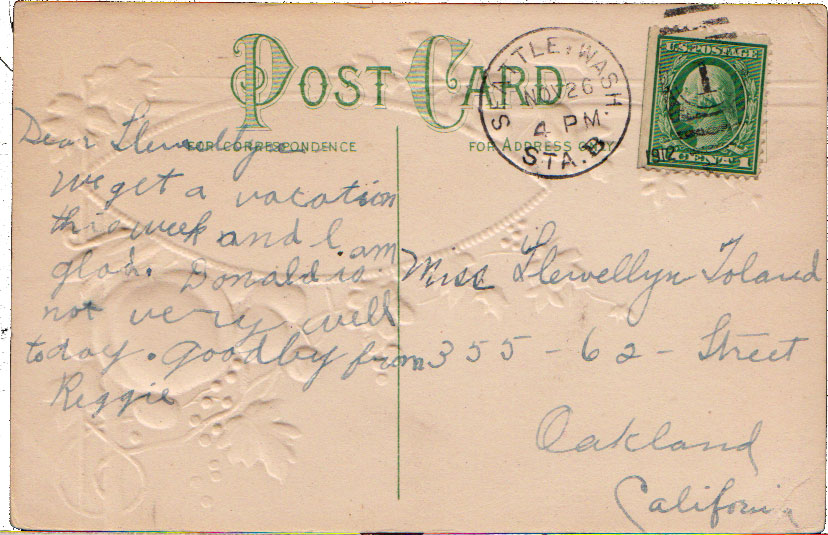 POST CARD
FOR CORRESPONDENCE
FOR ADDRESS ONLY
SEATTLE, WASH.
NOV 26
4 PM.
STA. B
1912
U.S. POSTAGE
1 CENT 1
Dear Llewellyn
We get a vacation
this week and I am
glad. Donald is
not very well
today. goodby from
Reggie
Miss Llewellyn Toland
355 - 62 - Street
Oakland
California